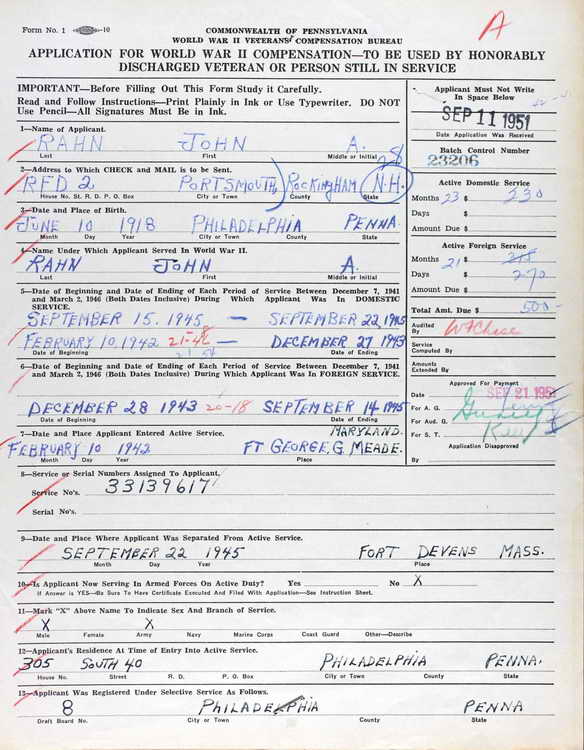 Form No. 1
COMMONWEALTH OF PENNSYLVANIA
WORLD WAR II VETERANS' COMPENSATION BUREAU
A
APPLICATION FOR WORLD WAR II COMPENSATION—TO BE USED BY HONORABLY
DISCHARGED VETERAN OR PERSON STILL IN SERVICE
IMPORTANT—Before Filling Out This Form Study it Carefully.
Read and Follow Instructions—Print Plainly in Ink or Use Typewriter. DO NOT
Use Pencil—All Signatures Must Be in Ink.
Applicant Must Not Write
In Space Below
SEP 11 1951
Date Application Was Received
Batch Control Number
23206
1—Name of Applicant.
RAHN JOHN A.
Last First Middle or Initial
2—Address to Which CHECK and MAIL is to be Sent.
RFD 2 PORTSMOUTH, ROCKINGHAM N.H.
House No. St. R. D. P. O. Box City or Town County State
3—Date and Place of Birth.
JUNE 10 1918 PHILADELPHIA PENNA.
Month Day Year City or Town State
4—Name Under Which Applicant Served In World War II.
RAHN JOHN A.
Last First Middle or Initial
Active Domestic Service
Months 23 $ 230
Days $
Amount Due $
Active Foreign Service
Months 21 $
Days $ 270
Amount Due $
Total Amt. Due $ 500-
Audited By
Service Computed By
Amounts Extended By
Approved For Payment
Date SEP 21 1951
For A. G.
For Aud. G.
For S. T.
Application Disapproved
By
5—Date of Beginning and Date of Ending of Each Period of Service Between December 7, 1941
and March 2, 1946 (Both Dates Inclusive) During Which Applicant Was In DOMESTIC
SERVICE.
SEPTEMBER 15, 1945 — SEPTEMBER 22, 1945
FEBRUARY 10, 1942 — DECEMBER 27 1943
Date of Beginning Date of Ending
6—Date of Beginning and Date of Ending of Each Period of Service Between December 7, 1941
and March 2, 1946 (Both Dates Inclusive) During Which Applicant Was In FOREIGN SERVICE.
DECEMBER 28 1943 20-18 SEPTEMBER 14 1945
Date of Beginning Date of Ending
7—Date and Place Applicant Entered Active Service.
MARYLAND.
FEBRUARY 10 1942 FT GEORGE, G. MEADE.
Month Day Year Place
8—Service or Serial Numbers Assigned To Applicant.
Service No's. 33139617
Serial No's.
9—Date and Place Where Applicant Was Separated From Active Service.
SEPTEMBER 22 1945 FORT DEVENS MASS.
Month Day Year Place
10—Is Applicant Now Serving In Armed Forces On Active Duty? Yes No X
If Answer is YES—Be Sure To Here Certificate Executed And Filed With Application—See Instruction Sheet.
11—Mark "X" Above Name To Indicate Sex and Branch of Service.
X X
Male Female Army Navy Marine Corps Coast Guard Other—Describe
12—Applicant's Residence At Time of Entry Into Active Service.
305 SOUTH 40 PHILADELPHIA PENNA.
House No. Street R. D. P. O. Box City or Town County State
13—Applicant Was Registered Under Selective Service As Follows.
8 PHILADELPHIA PENNA
Draft Board No. City or Town County State